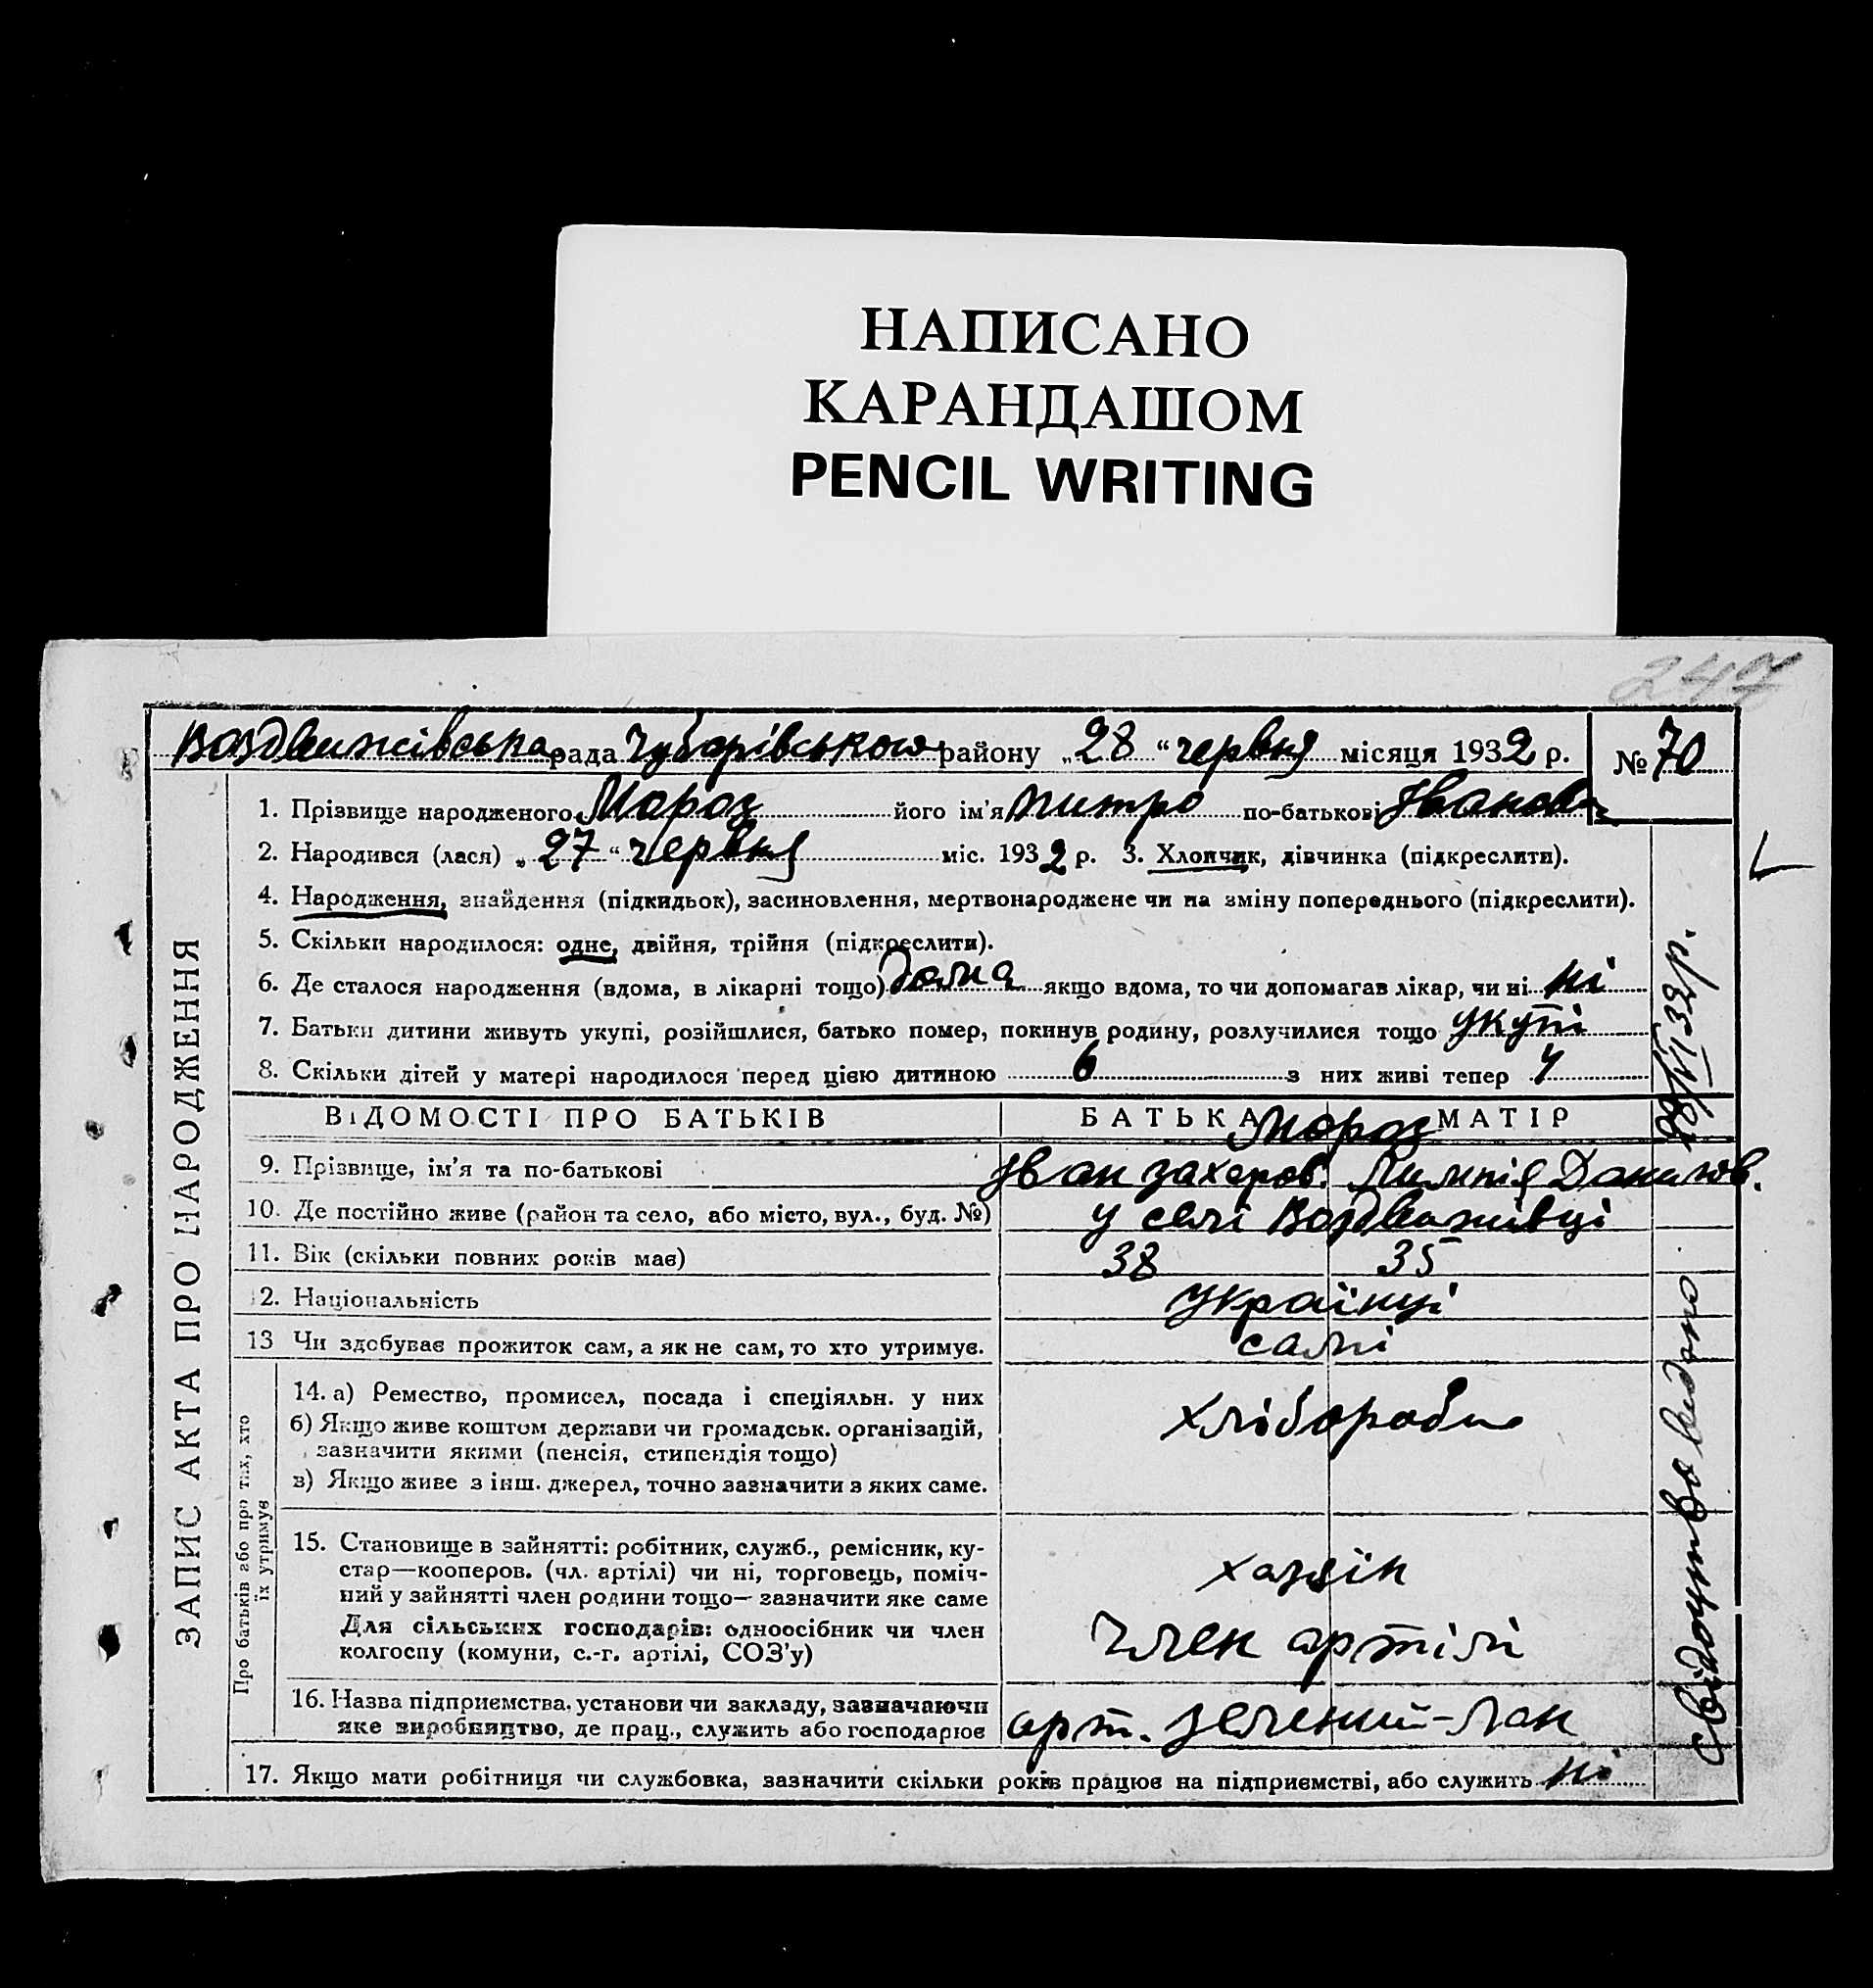 НАПИСАНО
КАРАНДАШОМ
PENCIL WRITING
247
Воздвижівська рада Чубарівського району „28“ червня місяця 1932 р. № 70
1. Прізвище народженого Мороз його ім'я Питро по-батькові Іванов
2. Народився (лася) „27“ червня міс. 1932 р. 3. Хлопчик, дівчинка (підкреслити).
4. Народження, знайдення (підкидьок), засиновлення, мертвонароджене чи на зміну попереднього (підкреслити).
5. Скільки народилося: одне, двійня, трійня (підкреслити).
6. Де сталося народження (вдома, в лікарні тощо) дома якщо вдома, то чи допомагав лікар, чи ні ні
7. Батьки дитини живуть укупі, розійшлися, батько помер, покинув родину, розлучилися тощо укупі
8. Скільки дітей у матері народилося перед цією дитиною 6 з них живі тепер 4
ВІДОМОСТІ ПРО БАТЬКІВ БАТЬКА МАТІР
Мороз
9. Прізвище, ім'я та по-батькові Іван Захаров. Лимпія Данилов.
10. Де постійно живе (район та село, або місто, вул., буд. №) у селі Воздвижівці
11. Вік (скільки повних років має) 38 35
12. Національність Українці
13 Чи здобуває прожиток сам, а як не сам, то хто утримує. самі
14. а) Ремество, промисел, посада і спеціяльн. у них
б) Якщо живе коштом держави чи громадськ. організацій,
зазначити якими (пенсія, стипендія тощо)
в) Якщо живе з інш. джерел, точно зазначити з яких саме.
хлібороби
15. Становище в зайнятті: робітник, служб., ремісник, ку-
стар—кооперов. (чл. артілі) чи ні, торговець, поміч-
ний у зайнятті член родини тощо— зазначити яке саме
Для сільських господарів: одноосібник чи член
колгоспу (комуни, с.-г. артілі, СОЗ'у)
хазяін
член артілі
16. Назва підприємства, установи чи закладу, зазначаючи
яке виробництво, де прац., служить або господарює
арт. зелений-лан
17. Якщо мати робітниця чи службовка, зазначити скільки років працює на підприємстві, або служить ні
ЗАПИС АКТА ПРО НАРОДЖЕННЯ
Про батьків або про тих, хто
їх утримує
Свідоцтво видано 28/VI 32 р.